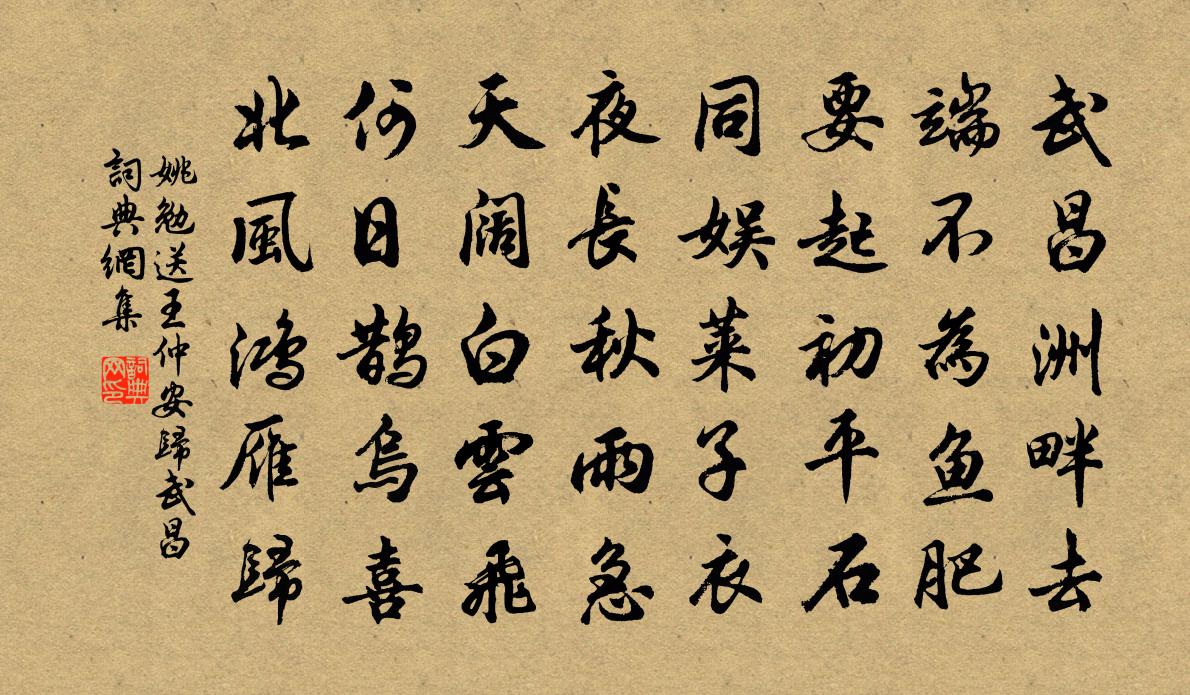 武昌洲畔去
端不為魚肥
要起初平石
同娱萊子衣
夜長秋雨急
天阔白雲飛
何日鹊烏喜
北風鸿雁歸
姚勉送王仲安歸武昌
詞典網集
詞典
网印